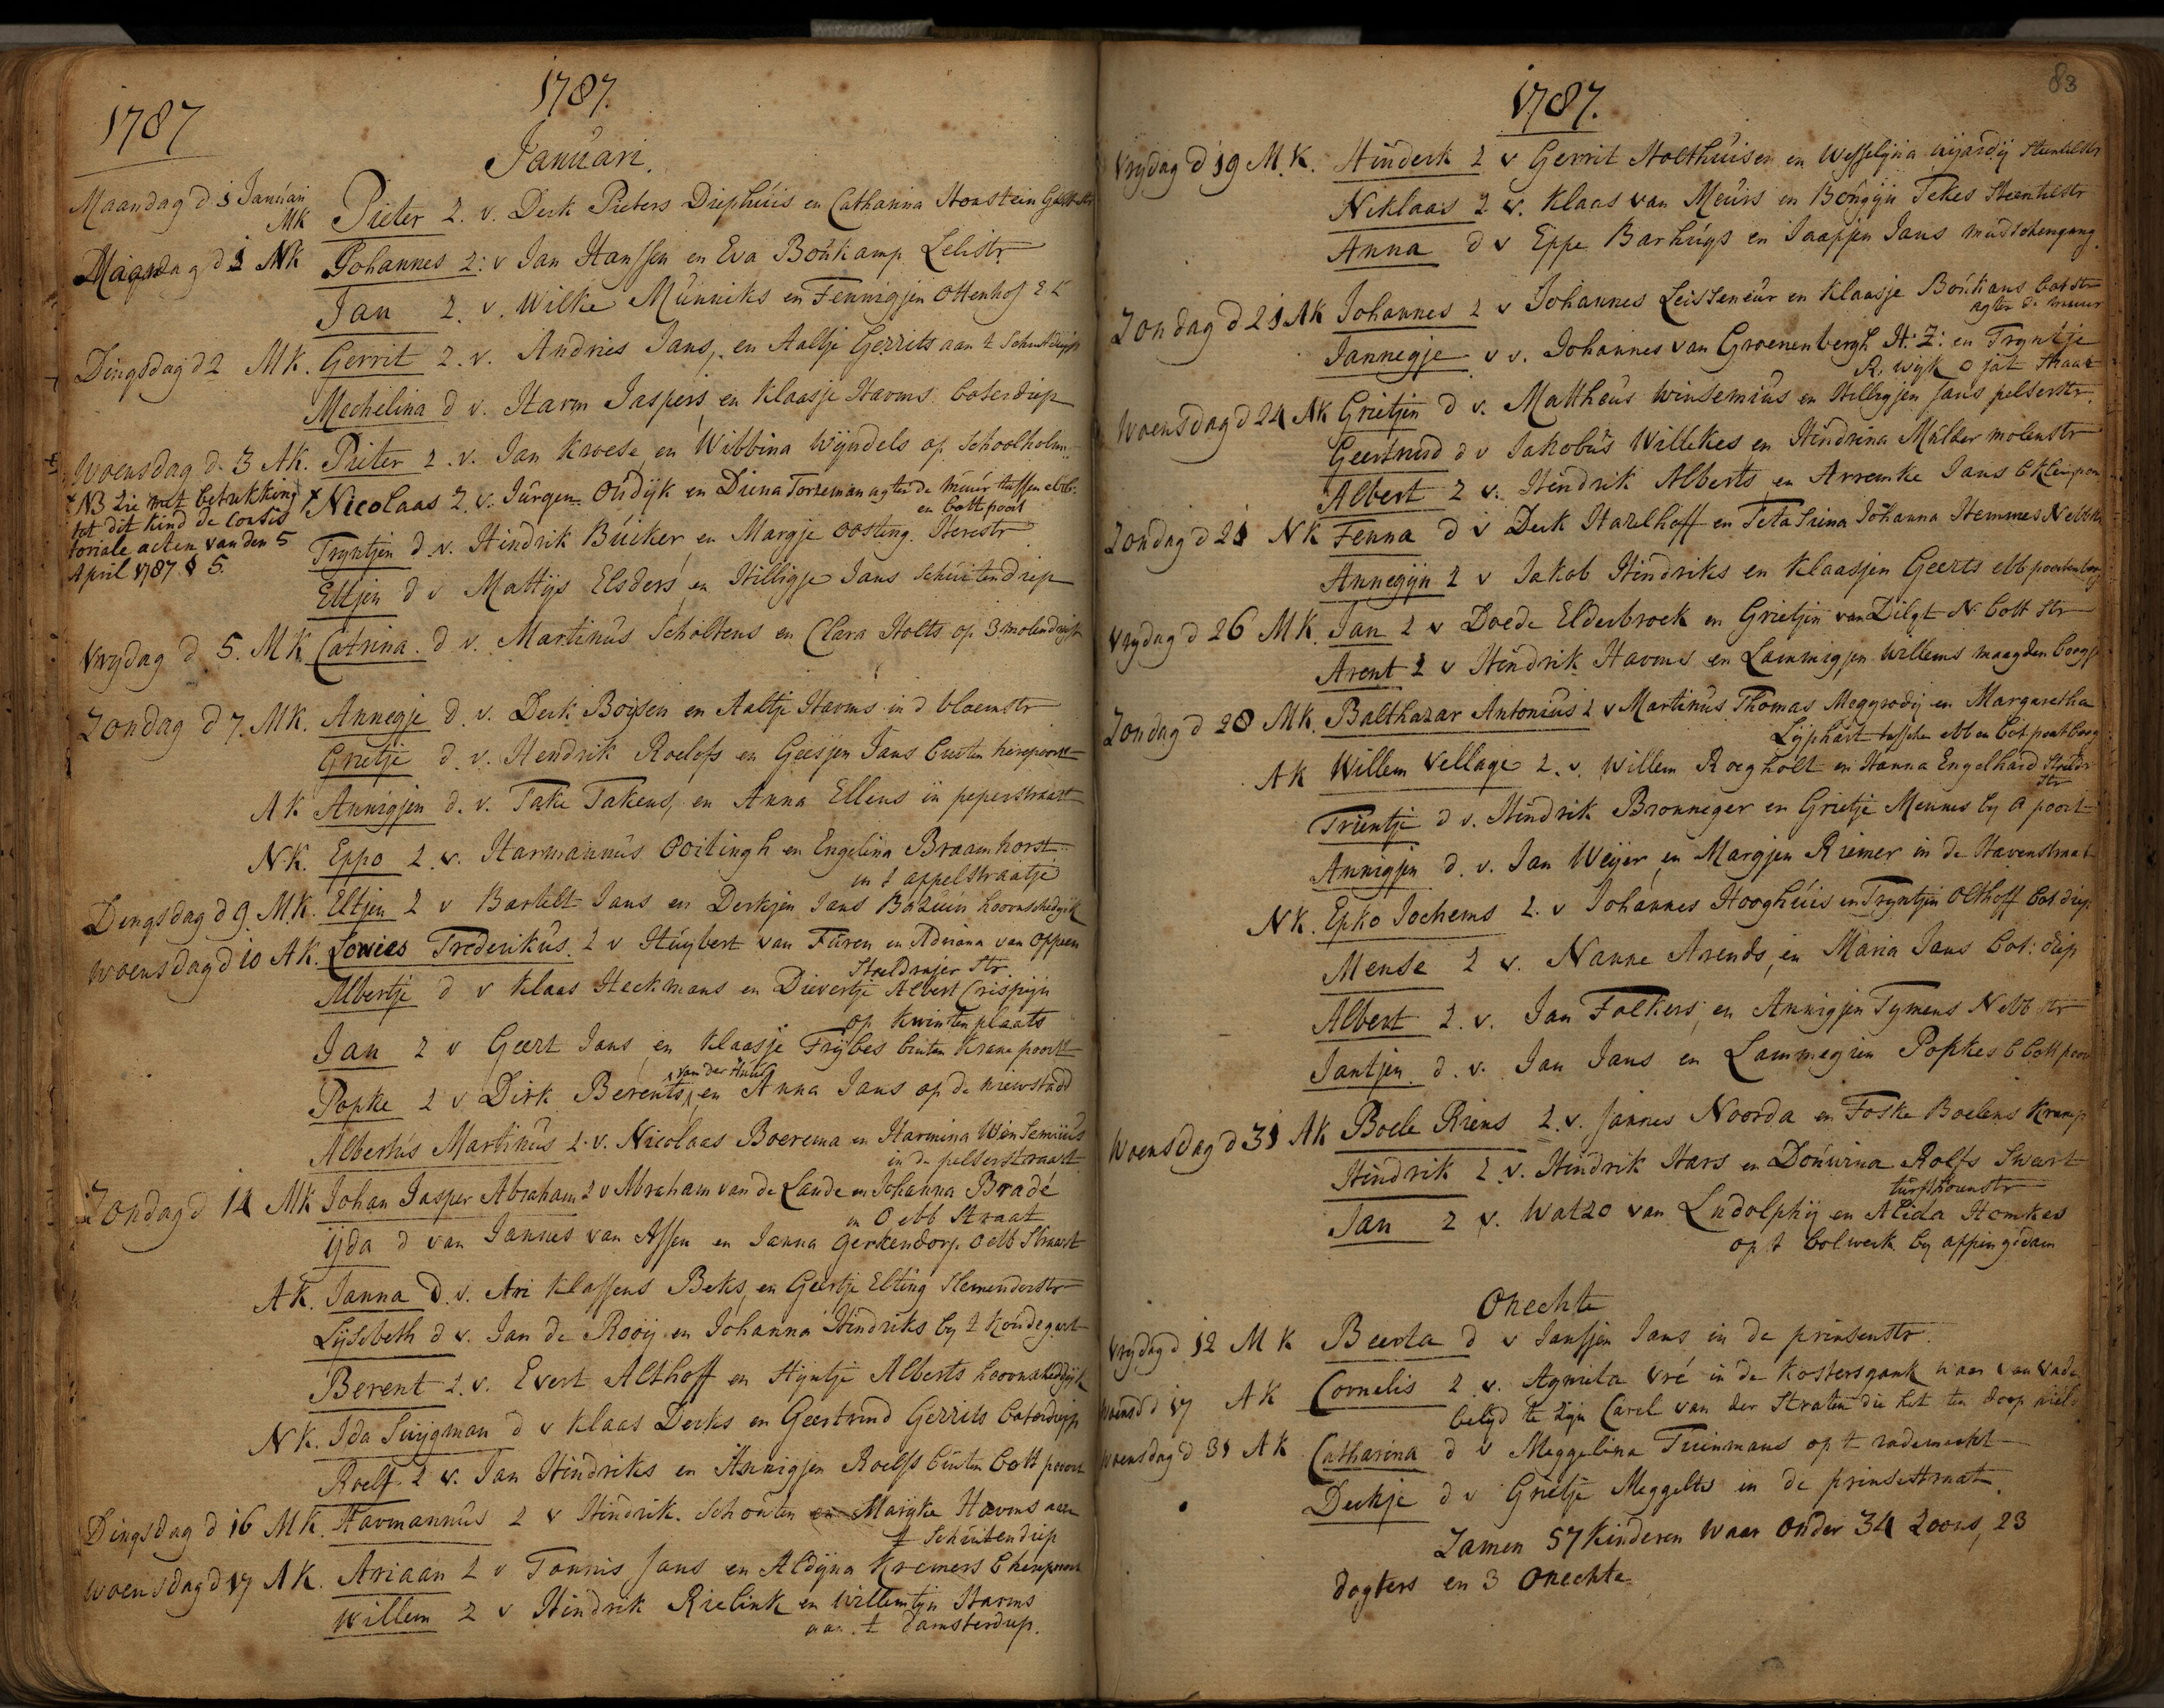 1787
1787.
Januari.
Maandag d 1 Januari
MK Pieter Z. v. Derk Pieters Diephuis en Catharina Honstein
Maandag d 1 NK Johannes Z: v Jan Hanssen en Eva Boukamp Leliestr
Jan Z. v. Wilke Munniks en Fennigjen Ottenhof
Dingsdag d 2 MK. Gerrit Z. v. Andries Jans, en Aaltje Gerrits aan t Schuitdiep
Mechelina d v. Harm Jaspers en Klaasje Harms boterdiep
Woensdag d 3 AK. Pieter Z. v. Jan Kroese en Wibbina Wijndels op Schoolholm
+ NB zie met betrekking
tot dit kind de Consis
toriale acten van den 5
April 1787 § 5.
+ Nicolaas Z. v. Jurgen Oudijk en Diena Torreman agter de muur tussen ebb:
en bott poort
Tryntjen d. v. Hindrik Bucker en Margje Oosting. Herestr
Eltjen d v Mattijs Elsders en Hilligje Jans Schuitendiep
Vrydag d 5. MK Catrina. d v. Martinus Scholtens en Clara Holts op 3 molendrift
Zondag d 7. MK. Annegje d. v. Derk Boijsen en Aaltje Harms in d bloemstr
Grietje d. v. Hendrik Roelofs en Geesjen Jans buiten herepoort
AK Annigjen d. v. Take Takens, en Anna Ellens in peperstraat
NK. Eppo Z. v. Harmannus Ooitingh en Engelina Braamhorst
in t appelstraatje
Dengsdag d 9. MK. Eltjen Z v Bartelt Jans en Derkjen Jans Bazuin hoornschedijk
Woensdag d 10 AK. Lowies Frederikus. Z v Huybert van Furen en Adriana van Oppen
Stoeldrajer Str
Albertje d v Klaas Heckmans en Dievertje Albert Crispijn
op Kwinten plaats
Jan Z v Geert Jans en Klaasje Frijbes buiten Krane poort
Popke Z v Dirk Berents, van der Huis en Anna Jans op de niewstadd
Albertus Martinus Z. v. Nicolaas Boerema en Harmina Winsemius
in de pelserstraat
Zondag d 14 MK Johan Jasper Abraham Z v Abraham van de Lande en Johanna Bradé
in O ebb Straat
ijda d van Jannes van Assen en Janna Gerkendorp O ebb Straat
AK. Janna d. v. Ari Klassens Beks, en Geertje Elting
Lijsebeth d v. Jan de Rooij en Johanna Hindriks by t
Berent Z. v. Evert Althoff en Stijntje Alberts hoornschedijk
NK. Ida Suijgman d v Klaas Derks en Geertruid Gerrits boterdiep
Roelf Z v. Jan Hindriks en Annigjen Roelfs buiten bott poort
Dingsdag d 16 MK. Harmannus Z v Hindrik. Schouten en Marijke Harms aan
t Schuitendiep
Woensdag d 17 AK. Ariaan Z v Tonnis Jans en Aldijna Kremers b herepoort
Willem Z v Hindrik Rielink en Willemtijn Harms
aan t damsterdiep.
83
1787.
Vrydag d 19 MK. Hinderk Z v Gerrit Holthuisen en Wesselijna Wijardij Steentilstr
Niklaas Z v. Klaas van Meurs en Bongijn Tekes Steentilstr
Anna d v Eppe Barhugs en Jaapjen Jans mudschengang
Zondag d 21 AK Johannes Z v Johannes Leisseneur en Klaasje Boukans botstr
agter de muur
Jannegje v v. Johannes van Groenenbergh H: Z: en Tryntje
R. wijk o jat straat
Woensdag d 24 AK Grietjen d v. Mattheus Winsemius en Hilligjen Jans pelserstr.
Geertruid d v Jakobus Willekes en Hindrina Mulder molenstr
Albert Z v. Hindrik Alberts en Arremke Jans b kleinpoo
Zondag d 21 NK Fenna d v Derk Hazelhoff en Teta Trina Johanna Hemmes N ebbstr
Annegijn Z v Jakob Hindriks en Klaasjen Geerts ebb poorten
Vrydag d 26 MK. Jan Z v Doede Elderbroek en Grietjen van Dilgt N bott Str
Arent Z v Hindrik Harms en Lammigjen Willems maagden boogje
Zondag d 28 MK. Balthazar Antonius Z v Martinus Thomas Megyrodij en Margaretha
Lijphart tusschen ebb en bot poort
AK Willem Vellage Z. v. Willem Roegholt en Hanna Engelhard Stoeldr
Str
Trientje d v. Hindrik Bronneger en Grietje Mennes by A poort
Annigjen d. v. Jan Weijer en Margjen Riemer in de Havenstraat
NK. Epko Jochems Z. v Johannes Hooghuis en Tryntjen Olthoff bot. diep
Mense Z v. Nanne Arends, en Maria Jans bot: diep
Albert Z. v. Jan Folkers, en Annigjen Tymens N ebb str
Jantjen. d. v. Jan Jans en Lammegien Popkes b bott poor
Woensdag d 31 AK Boele Riens Z. v. Jannes Noorda en Foske Boelens
Hindrik Z. v. Hindrik Hars en Douwina Rolfs Swart
turfthorenstr
Jan Z v. Watzo van Ludolphij en Alida Homkes
op t bolwerk by appingedam
Onechte
Vrydag d 12 MK Beerta d v Janssjen Jans in de prinsenstr.
Woensd d 17 AK Cornelis Z v. Agnieta Vré in de Kostersgank waar van vade
belyd te zijn Carel van der Straten die het ten doop hield
Woensdag d 31 AK Catharina d v Meggelina Tuinmans op t rademarkt
Derkje d v Grietje Meggelts in de prinsestraat.
Zamen 57 Kinderen waar onder 34 Zoons, 23
dogters en 3 Onechte